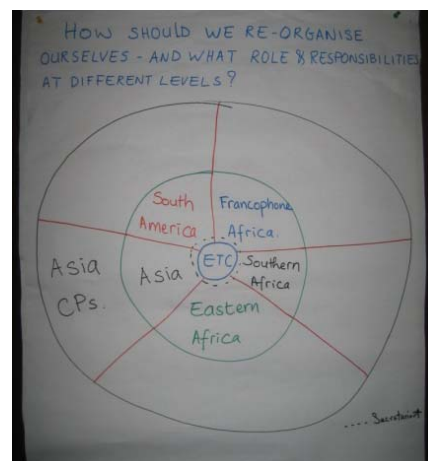 HOW SHOULD WE RE-ORGANISE
OURSELVES - AND WHAT ROLE & RESPONSIBILITIES
AT DIFFERENT LEVELS?
South
America
Francophone
Africa.
Asia
CPs.
Asia
ETC
Southern
Africa
Eastern
Africa
.... Secretariat